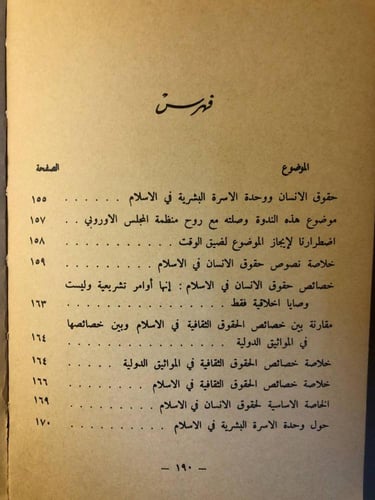 فهرس
الموضوع الصفحة
حقوق الانسان ووحدة الاسرة البشرية في الاسلام . . . . . . ١٥٥
موضوع هذه الندوة وصلته مع روح منظمة المجلس الاوروبي . . ١٥٧
اضطرارنا لإيجاز الموضوع لضيق الوقت . . . . . . . ١٥٨
خلاصة نصوص حقوق الانسان في الاسلام . . . . . . ١٥٩
خصائص حقوق الانسان في الاسلام : إنها أوامر تشريعية وليست
وصايا اخلاقية فقط . . . . . . . . . . . ١٦٣
مقارنة بين خصائص الحقوق الثقافية في الاسلام وبين خصائصها
في المواثيق الدولية . . . . . . . . . . . ١٦٤
خلاصة خصائص الحقوق الثقافية في المواثيق الدولية . . . ١٦٤
خلاصة خصائص الحقوق الثقافية في الاسلام . . . . . ١٦٦
الخاصة الاساسية لحقوق الانسان في الاسلام . . . . . ١٦٩
حول وحدة الاسرة البشرية في الاسلام . . . . . . ١٧٠
— ١٩٠ —